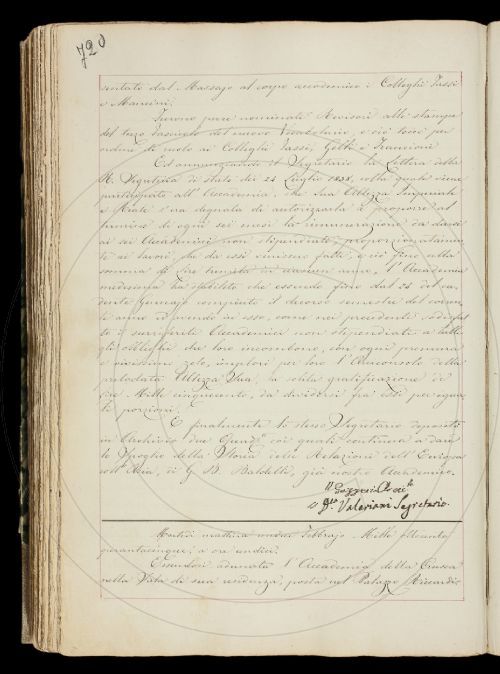 720
sentato dal Massajo al corpo accademico i Colleghi Tassi
e Mancini.
Furono pure nominati Revisori alle stampe
del terzo fascicolo del nuovo Vocabolario, e ciò toccò per
ordine di ruolo ai Colleghi Tassi, Gelli e Francioni
Ed annunziandosi dal Segretario la Lettera della
R. Segreteria di Stato dei 24 Luglio 1838, colla quale viene
partecipato all'Accademia, che Sua Altezza Imperiale
e Reale s'era degnata di autorizzarla a proporre al
termine di ogni sei mesi la rimunerazione da darsi
ai sei Accademici non stipendiati, proporzionatamen-
te ai lavori che da essi venissero fatti, e ciò fino alla
somma di lire tremila in ciascun anno, l'Accademia
medesima ha stabilito che essendo fino dal dì 24 del ca-
dente Gennajo compiuto il decorso semestre del corren-
te anno ed avendo in esso, come nei precedenti sodisfat-
to i surriferiti Accademici non stipendiati a tutti
gli obblighi che loro incombono, con ogni premura
e vivissimo zelo, implori per loro l'Arciconsolo della
prelodata Altezza Sua, la solita gratificazione di
lire Mille cinquecento, da dividersi fra essi per egua-
li porzioni.
E finalmente lo stesso Segretario depositò
in Archivio due Quad.ⁱ coi quali continua a dare
lo Spoglio della Storia delle Relazioni dell'Europa
coll'Asia, di G. B. Baldelli, già nostro Accademico.
G. Valeriani Segretario.
Martedì mattina undici Febbrajo Mille ottocento
quarantacinque, a ore undici.
Essendosi adunata l'Accademia della Crusca
nella Stanza di sua residenza, posta nel Palazzo Riccardi